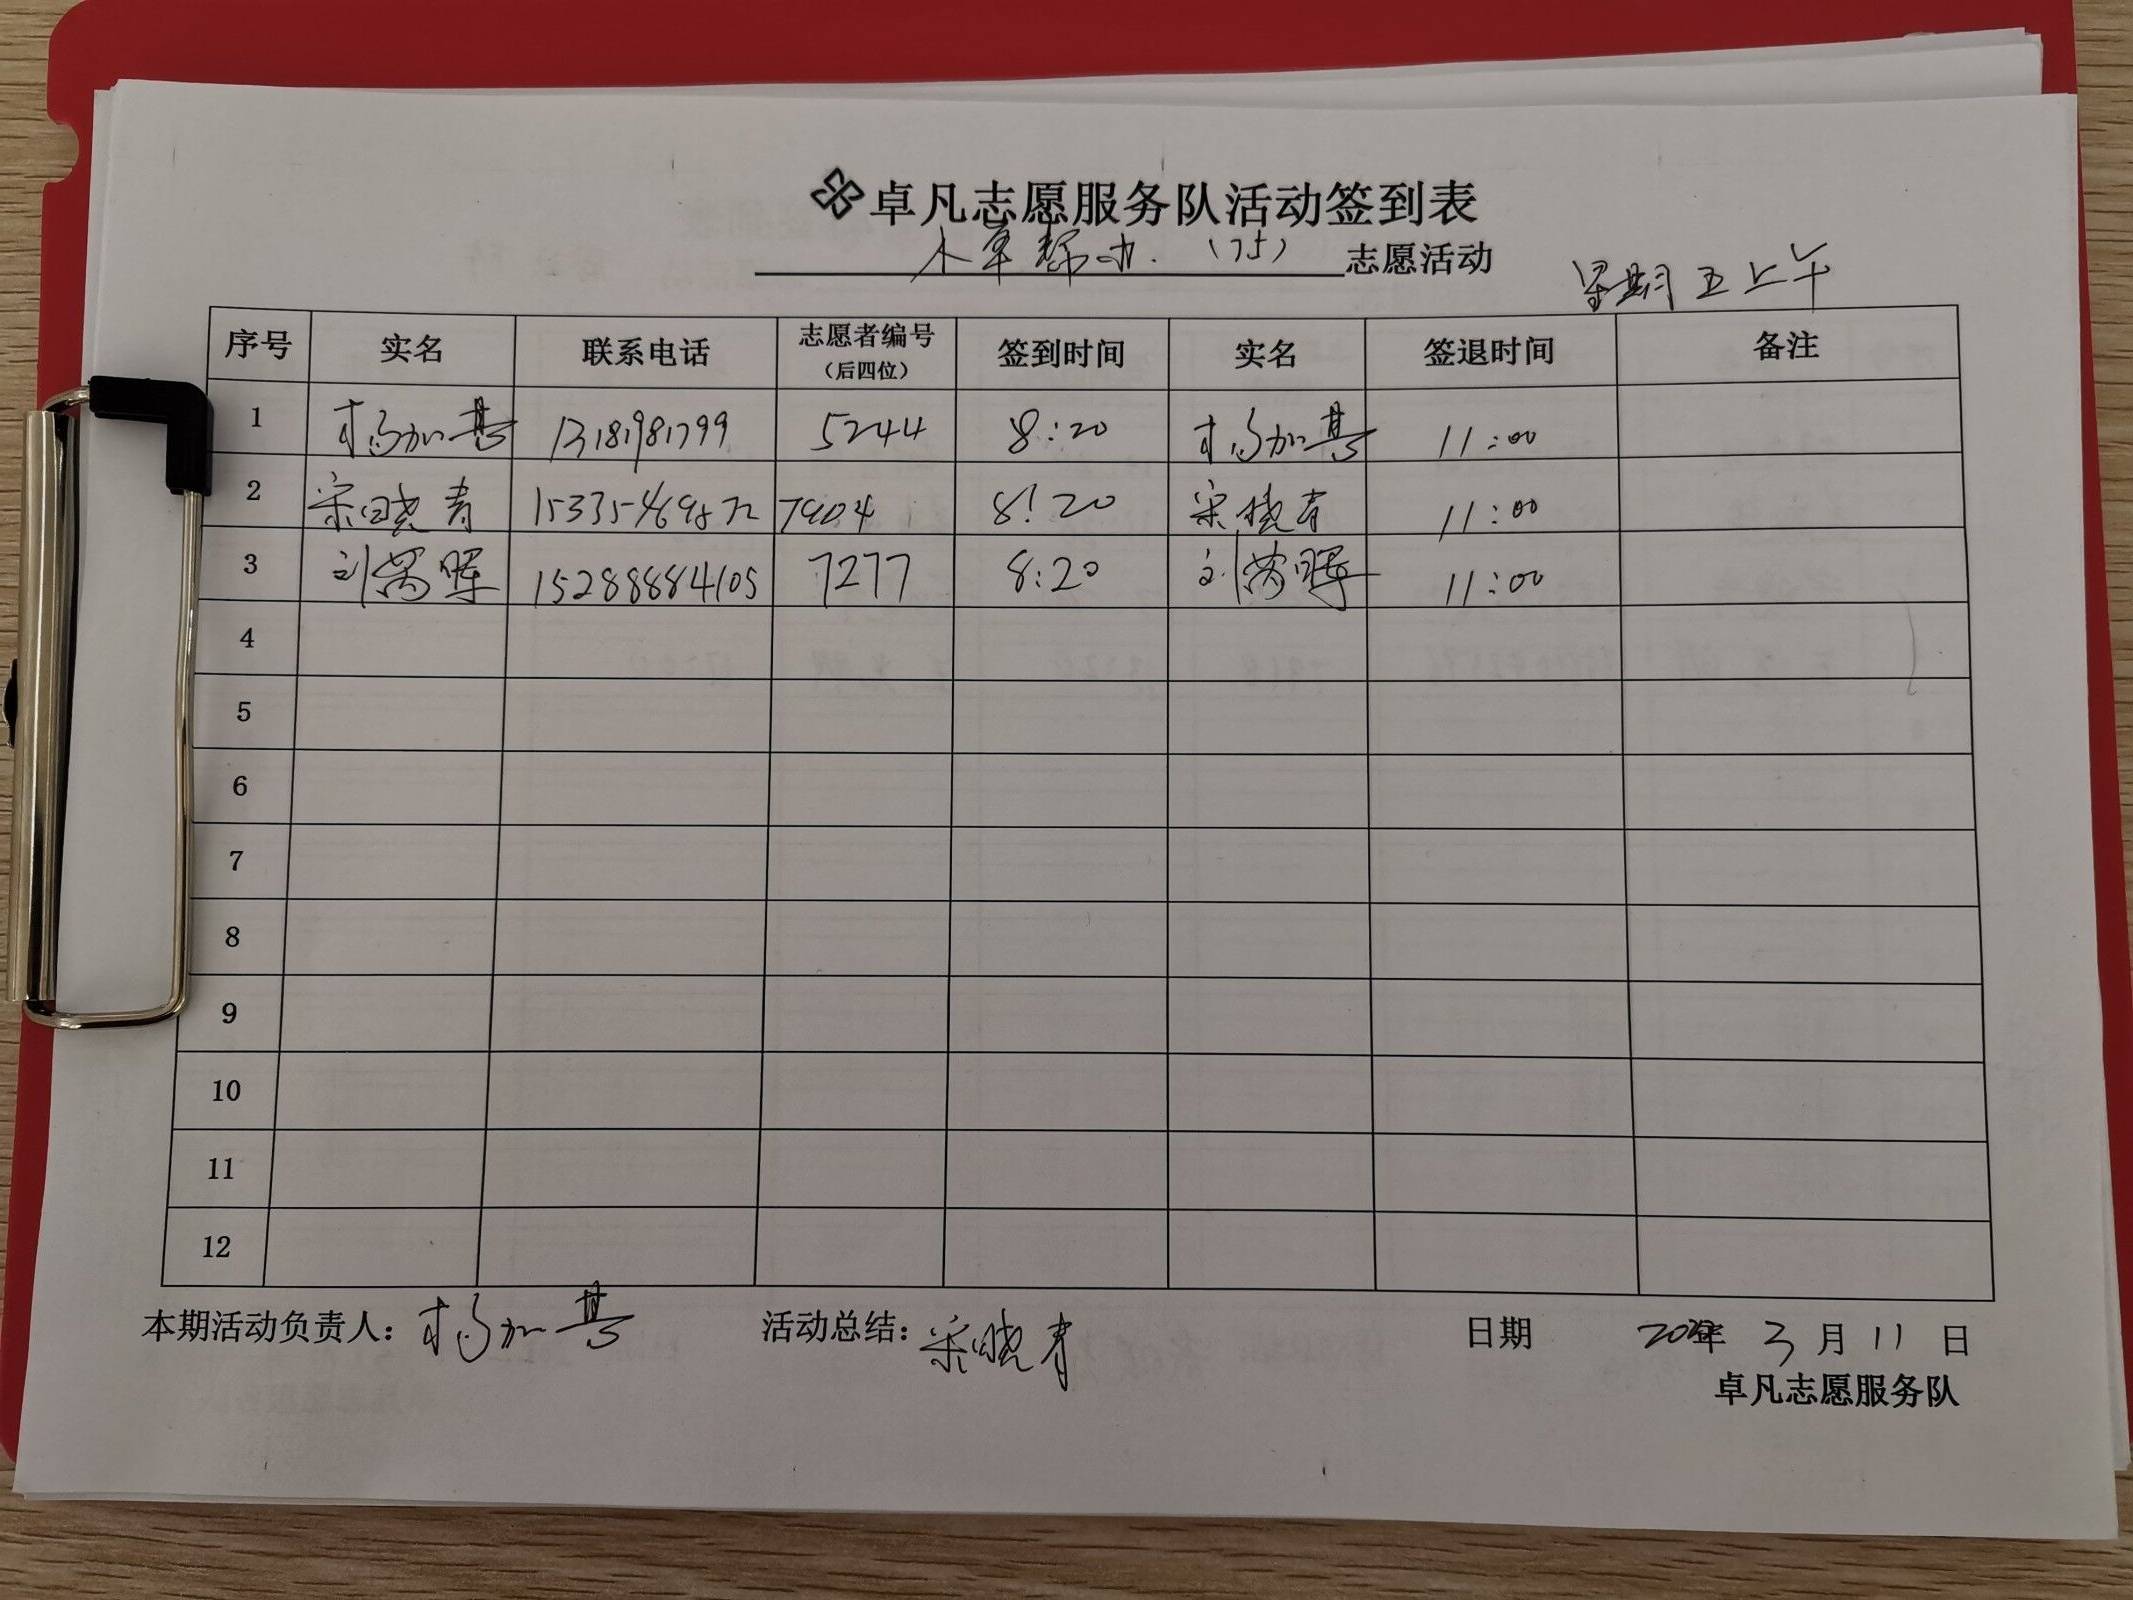 卓凡志愿服务队活动签到表
(75) 志愿活动
星期五上午
序号 实名 联系电话 志愿者编号（后四位） 签到时间 实名 签退时间 备注
1 杨加基 13181981799 5244 8:20 杨加基 11:00
2 宋晓青 7904 8:20 宋晓青 11:00
3 刘 晖 15288884105 7277 8:20 刘 晖 11:00
4
5
6
7
8
9
10
11
12
本期活动负责人: 杨加基 活动总结: 宋晓青 日期 年 3 月 11 日
卓凡志愿服务队